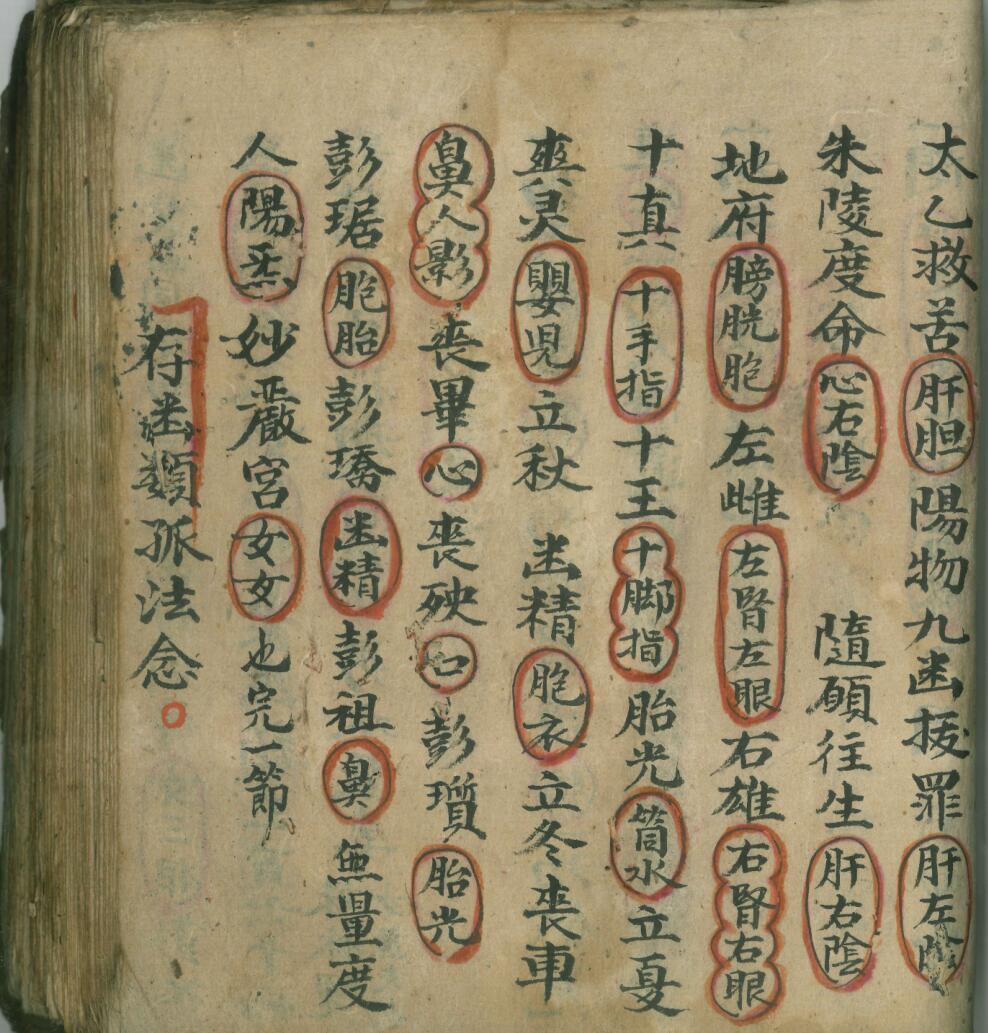 太乙救苦肝胆陽物九幽拔罪肝左陰
朱陵度命心右陰 隨願往生肝右陰
地府膀胱胞左雌左腎左眼右雄右腎右眼
十真十手指十王十脚指胎光筒水立夏
爽灵嬰児立秋 幽精胞衣立冬喪車
鼻人影喪畢心喪殃口彭瓆胎光
彭琚胞胎彭璚幽精彭祖鼻無量度
人陽炁妙嚴宮女女也完一節
存幽類孤法念